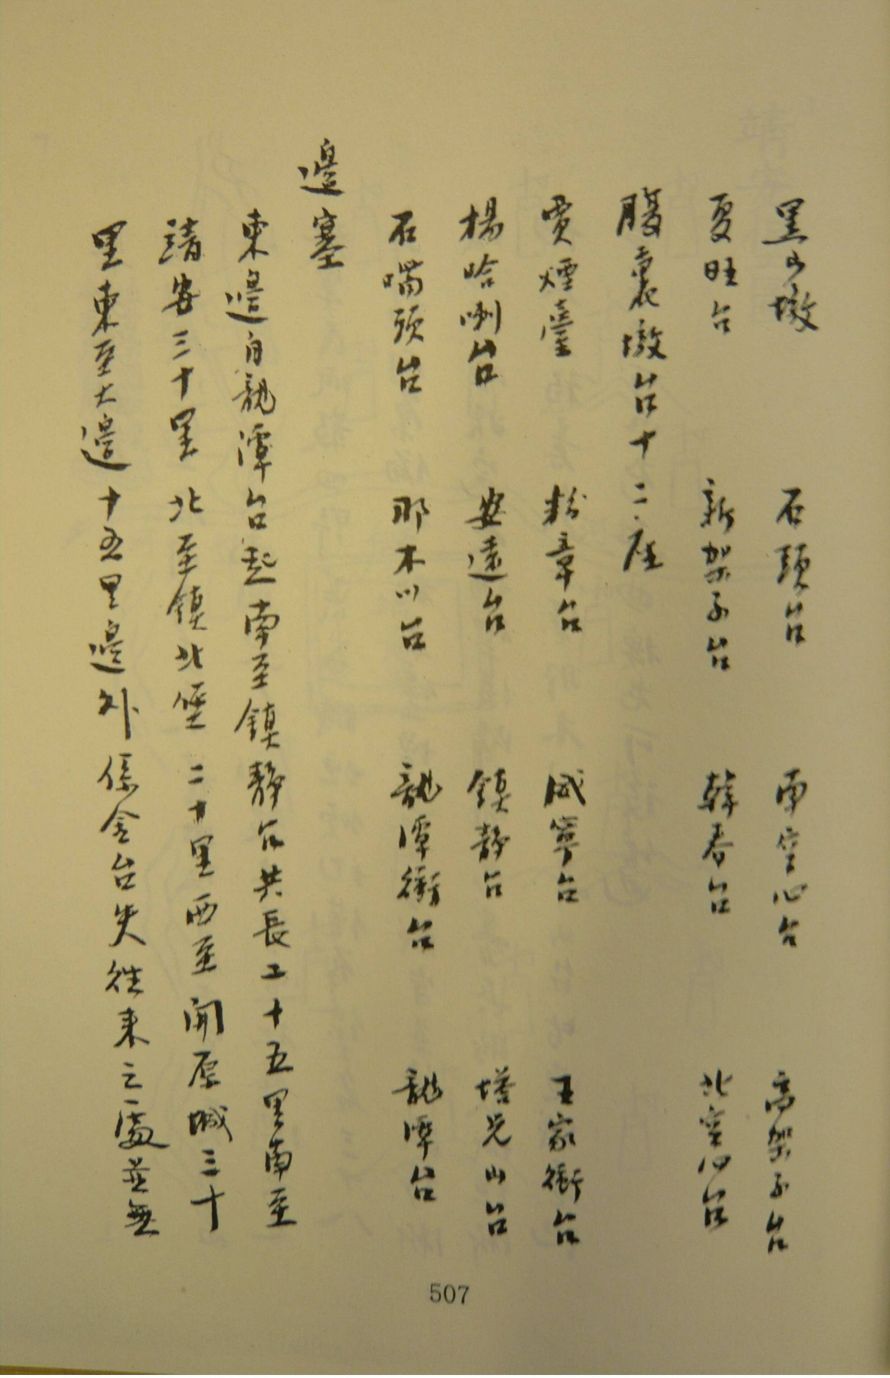 黑山墩 石頭台 南空心台 高架子台
夏旺台 新架子台 韓春台 北空心台
腹裏墩台十二座
賈煙臺 粉章台 咸寧台 王家衝台
楊哈唎台 安遠台 鎮静台 塔兒山台
石嘴頭台 那木川台 龍潭衝台 龍潭台
邊塞
東邊自龍潭台起南至鎮静台共長二十五里南至
靖安三十里北至鎮北堡二十里西至開原城三十
里東至大邊十五里邊外係金台失往来之處並無
507